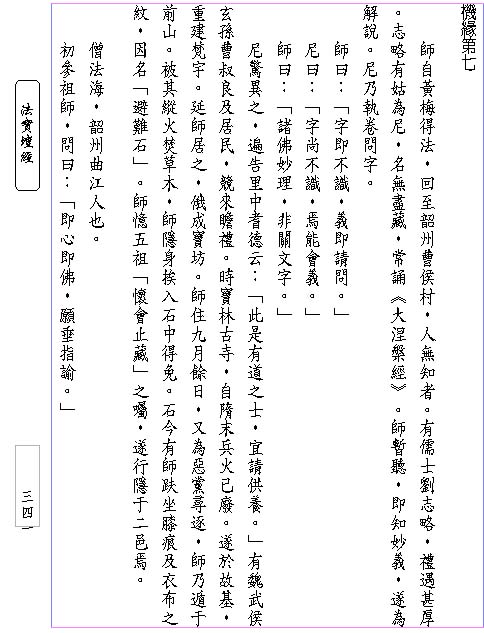 機緣第七
師自黃梅得法，回至韶州曹侯村，人無知者。有儒士劉志略，禮遇甚厚
。志略有姑為尼，名無盡藏，常誦《大涅槃經》。師暫聽，即知妙義，遂為
解說。尼乃執卷問字。
師曰：「字即不識，義即請問。」
尼曰：「字尚不識，焉能會義。」
師曰：「諸佛妙理，非關文字。」
尼驚異之，遍告里中耆德云：「此是有道之士，宜請供養。」有魏武侯
玄孫曹叔良及居民，競來瞻禮。時寶林古寺，自隋末兵火已廢。遂於故基，
重建梵宇。延師居之，俄成寶坊。師住九月餘日，又為惡黨尋逐，師乃遁于
前山。被其縱火焚草木，師隱身挨入石中得免。石今有師趺坐膝痕及衣布之
紋，因名「避難石」。師憶五祖「懷會止藏」之囑，遂行隱于二邑焉。
僧法海，韶州曲江人也。
初參祖師，問曰：「即心即佛，願垂指諭。」
法寶壇經
三四